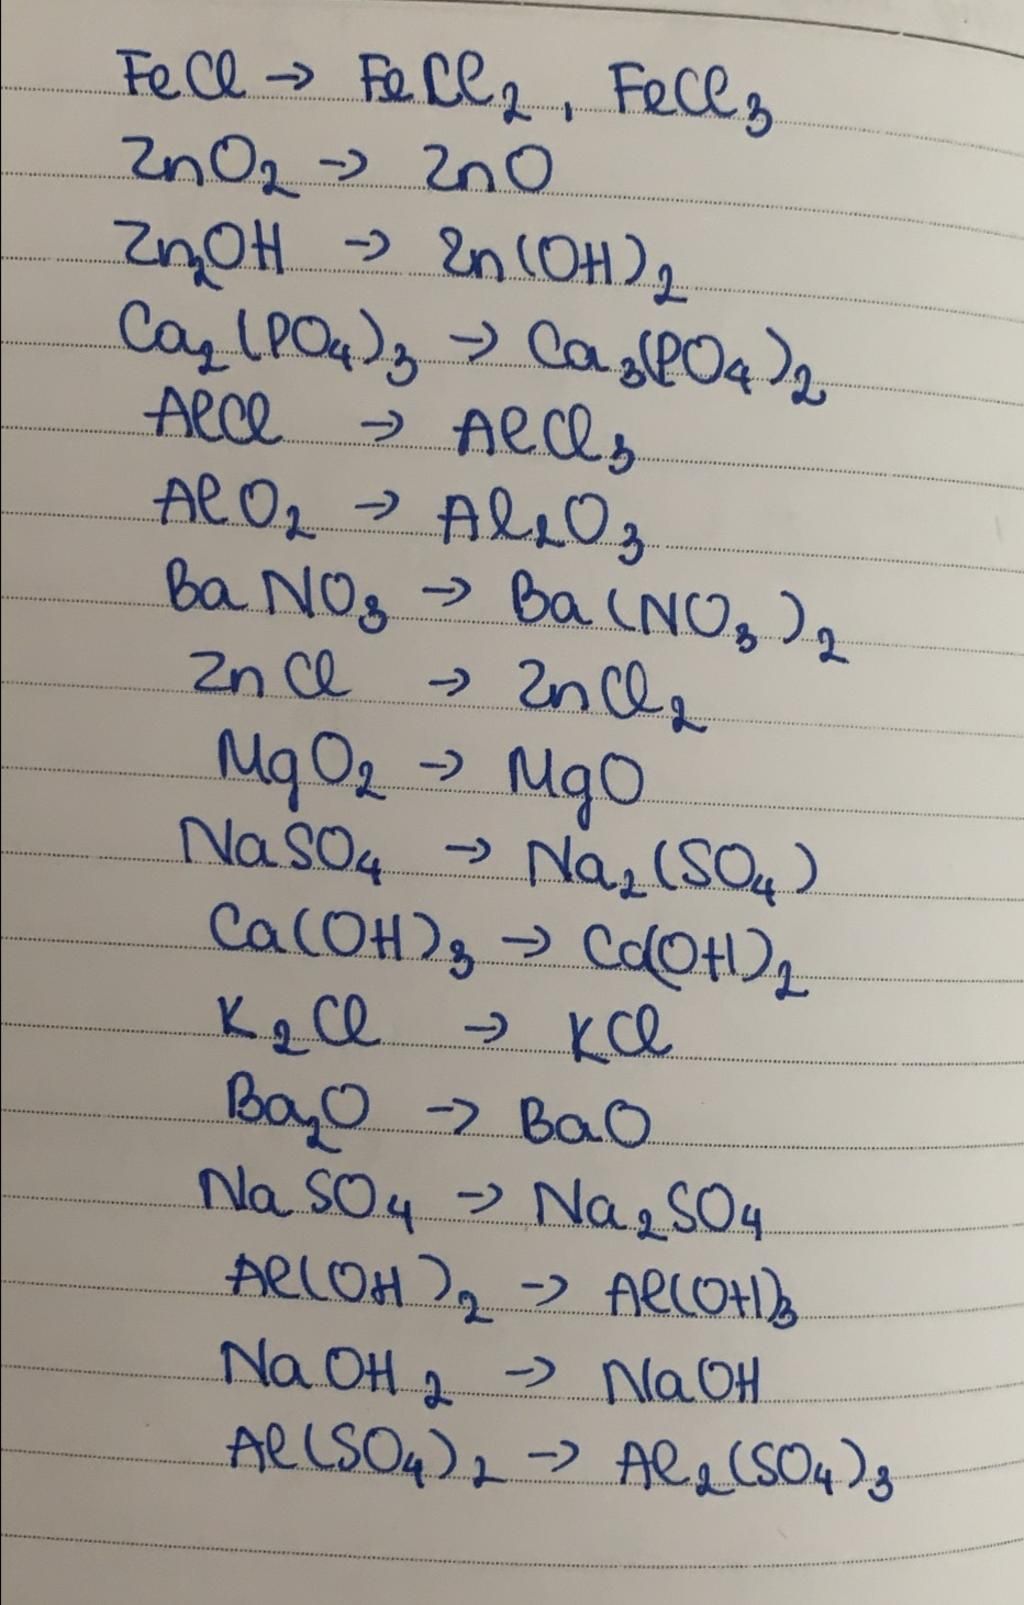 FeCl → FeCl₂, FeCl₃
ZnO₂ → ZnO
Zn₂OH → Zn(OH)₂
Ca₂(PO₄)₃ → Ca₃(PO₄)₂
AlCl → AlCl₃
AlO₂ → Al₂O₃
BaNO₃ → Ba(NO₃)₂
ZnCl → ZnCl₂
MgO₂ → MgO
NaSO₄ → Na₂(SO₄)
Ca(OH)₃ → Ca(OH)₂
K₂Cl → KCl
Ba₂O → BaO
NaSO₄ → Na₂SO₄
Al(OH)₂ → Al(OH)₃
NaOH₂ → NaOH
Al(SO₄)₂ → Al₂(SO₄)₃